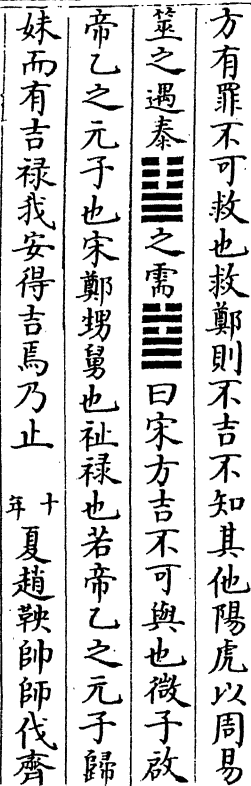 方有罪不可救也救鄭則不吉不知其他陽虎以周易
筮之遇泰䷊之需䷄曰宋方吉不可與也微子啟
帝乙之元子也宋鄭甥舅也祉祿也若帝乙之元子歸
妹而有吉祿我安得吉焉乃止 十年夏趙鞅帥師伐齊